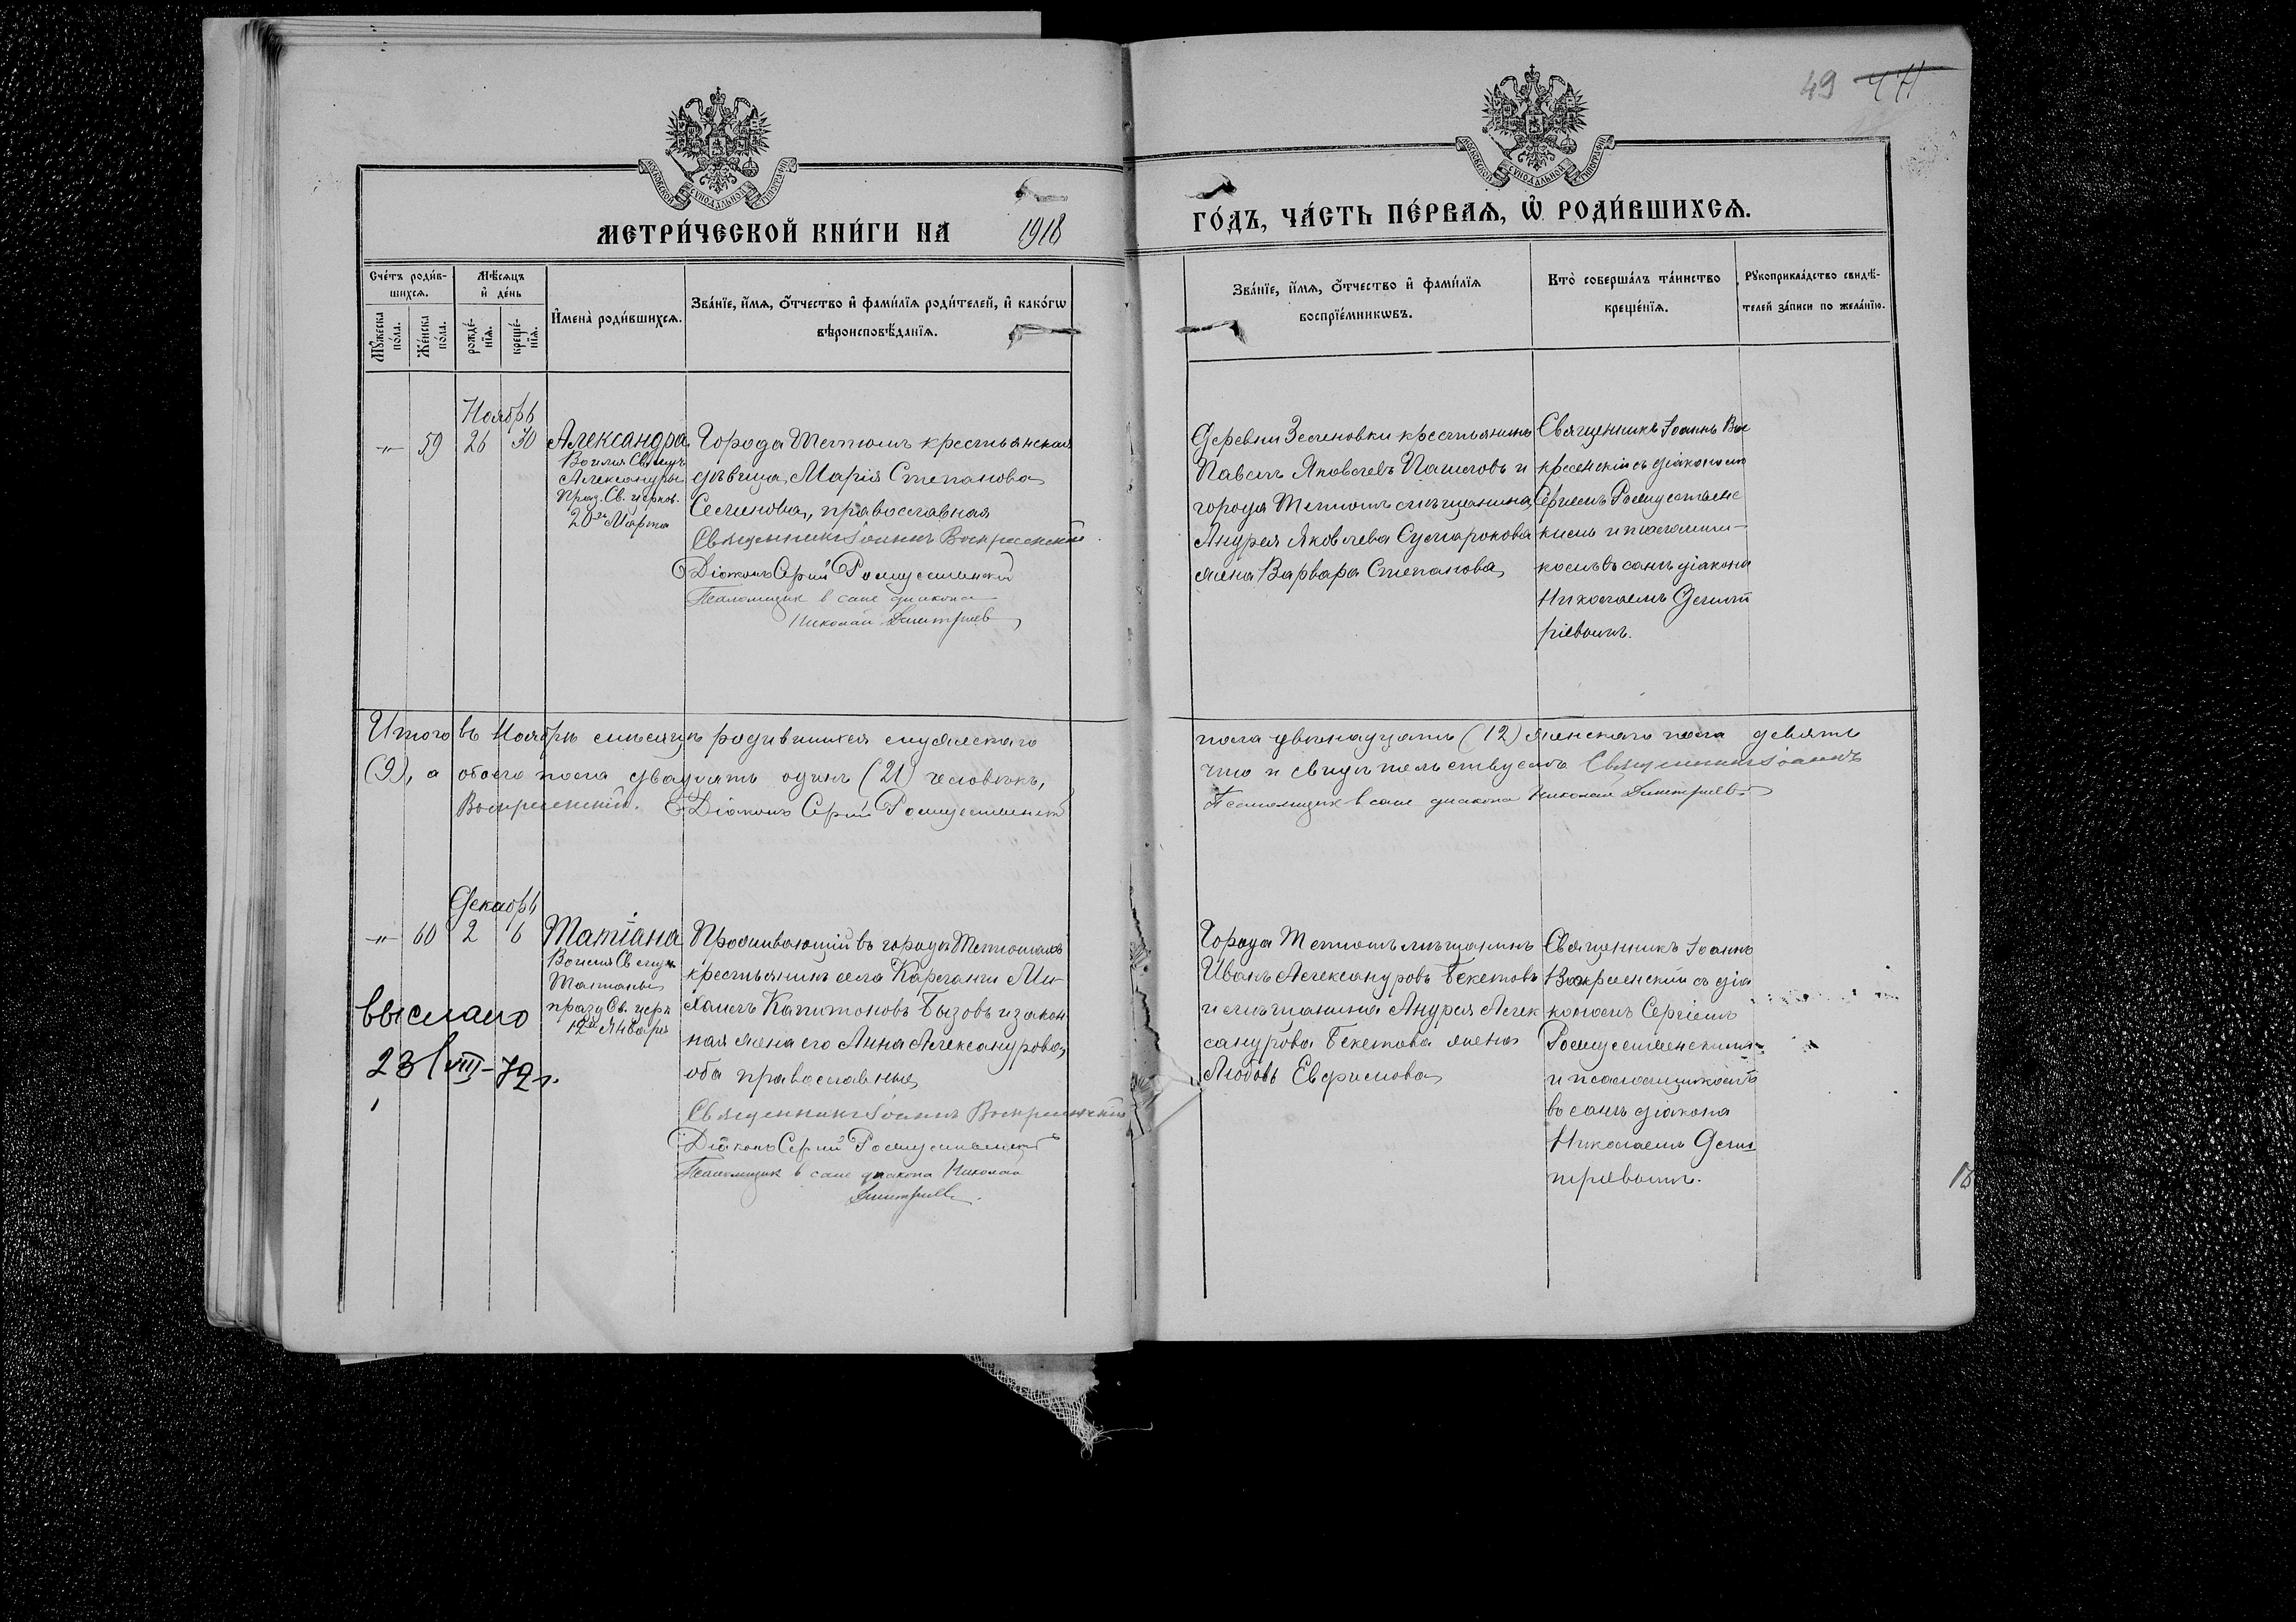 49 44
МОСКОВСКОЙ СУНОДАЛЬНОЙ ТИПОГРАФІИ
МОСКОВСКОЙ СУНОДАЛЬНОЙ ТИПОГРАФІИ
МЕТРИ́ЧЕСКОЙ КНИ́ГИ НА 1918 ГО́ДЪ, ЧА́СТЬ ПЕ́РВАѦ, Ѡ҆ РОДИ́ВШИХСѦ.
Сче́тъ роди́в-
шихсѧ.
Мѣ́сѧцъ
и҆ де́нь
Мꙋ́жеска
по́ла.
Же́нска
по́ла.
рожде́-
нїѧ.
креще́-
нїѧ.
И҆мена̀ роди́вшихсѧ.
Зва́нїе, и҆́мѧ, ѻ҆́тчество и҆ фами́лїѧ роди́телей, и҆ како́гѡ
вѣроисповѣ́данїѧ.
Зва́нїе, и҆́мѧ, ѻ҆́тчество и҆ фами́лїѧ
воспрїе́мникѡвъ.
Кто̀ соверша́лъ та́инство
креще́нїѧ.
Рꙋкоприкла́дство свидѣ́-
телей за́писи по жела́нїю.
Ноябрь
-"- 59 26 30
Александра
Во имя Св. муч.
Александры
Праз. Св. церков.
20го Марта
Города Тетюшъ крестьянская
дѣвица, Марія Степанова
Селинова, православная
Священникъ Іоаннъ Воскресенскій
Діаконъ Сергій Рождественскій
Псаломщик в сане диакона
Николай Димитриев
Деревни Зеленовки крестьянинъ
Павелъ Яковлевъ Пашковъ и
города Тетюшъ мѣщанина
Андрея Яковлева Сумарокова
жена Варвара Степанова
Священникъ Іоаннъ Вос
кресенскій съ діакономъ
Сергіемъ Рождественс
кимъ и псаломщи-
комъ въ санѣ діакона
Николаемъ Димит
ріевымъ.
Итого въ Ноябрѣ мѣсяцѣ родившихся мужескаго
пола двѣнадцать (12) женскаго пола девять
(9), а обоего пола двадцать одинъ (21) человѣкъ,
что и свидѣтельствуемъ Священникъ Іоаннъ
Воскресенскій. Діаконъ Сергій Рождественскій
Псаломщик в сане диакона Николай Димитриев
Декабрь
-"- 60 2 6
Татіана
Во имя Св. муч.
Татіаны
празд. Св. церк
12го Января
выслано
23/VIII-72 г.
Проживающій въ городѣ Тетюшахъ
крестьянинъ села Ми-
хаилъ Капитоновъ Бызовъ и закон
ная жена его Анна Александрова,
оба православные
Священникъ Іоаннъ Воскресенскій
Діаконъ Сергій Рождественскій
Псаломщик в сане диакона Николай
Димитриев.
Города Тетюшъ мѣщанинъ
Иванъ Александровъ Бекетовъ
и мѣщанина Андрея Алек
сандрова Бекетова жена
Любовь Евфимова
Священникъ Іоаннъ
Воскресенскій съ діа
кономъ Сергіемъ
Рождественскимъ
и псаломщикомъ
въ санѣ діакона
Николаемъ Дими
тріевымъ.
18